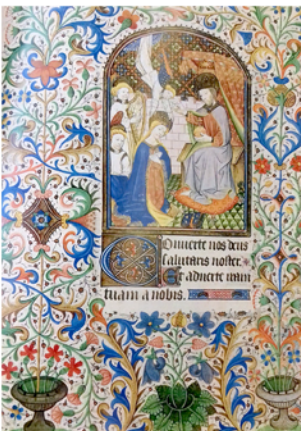 Onuerte nos deus
salutaris noster.
Et aduerte iram
tuam a nobis.